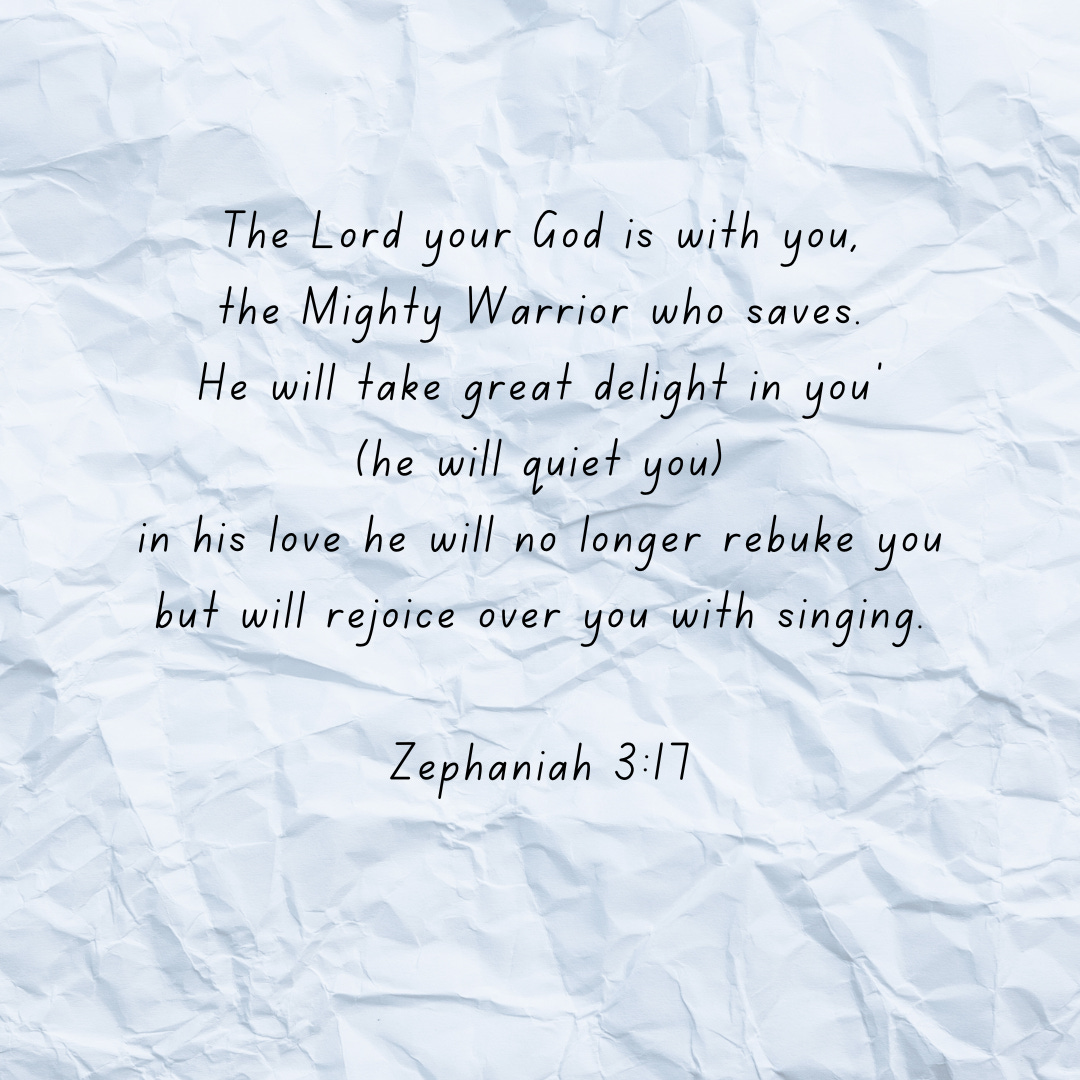 The Lord your God is with you,
the Mighty Warrior who saves.
He will take great delight in you'
(he will quiet you)
in his love he will no longer rebuke you
but will rejoice over you with singing.
Zephaniah 3:17